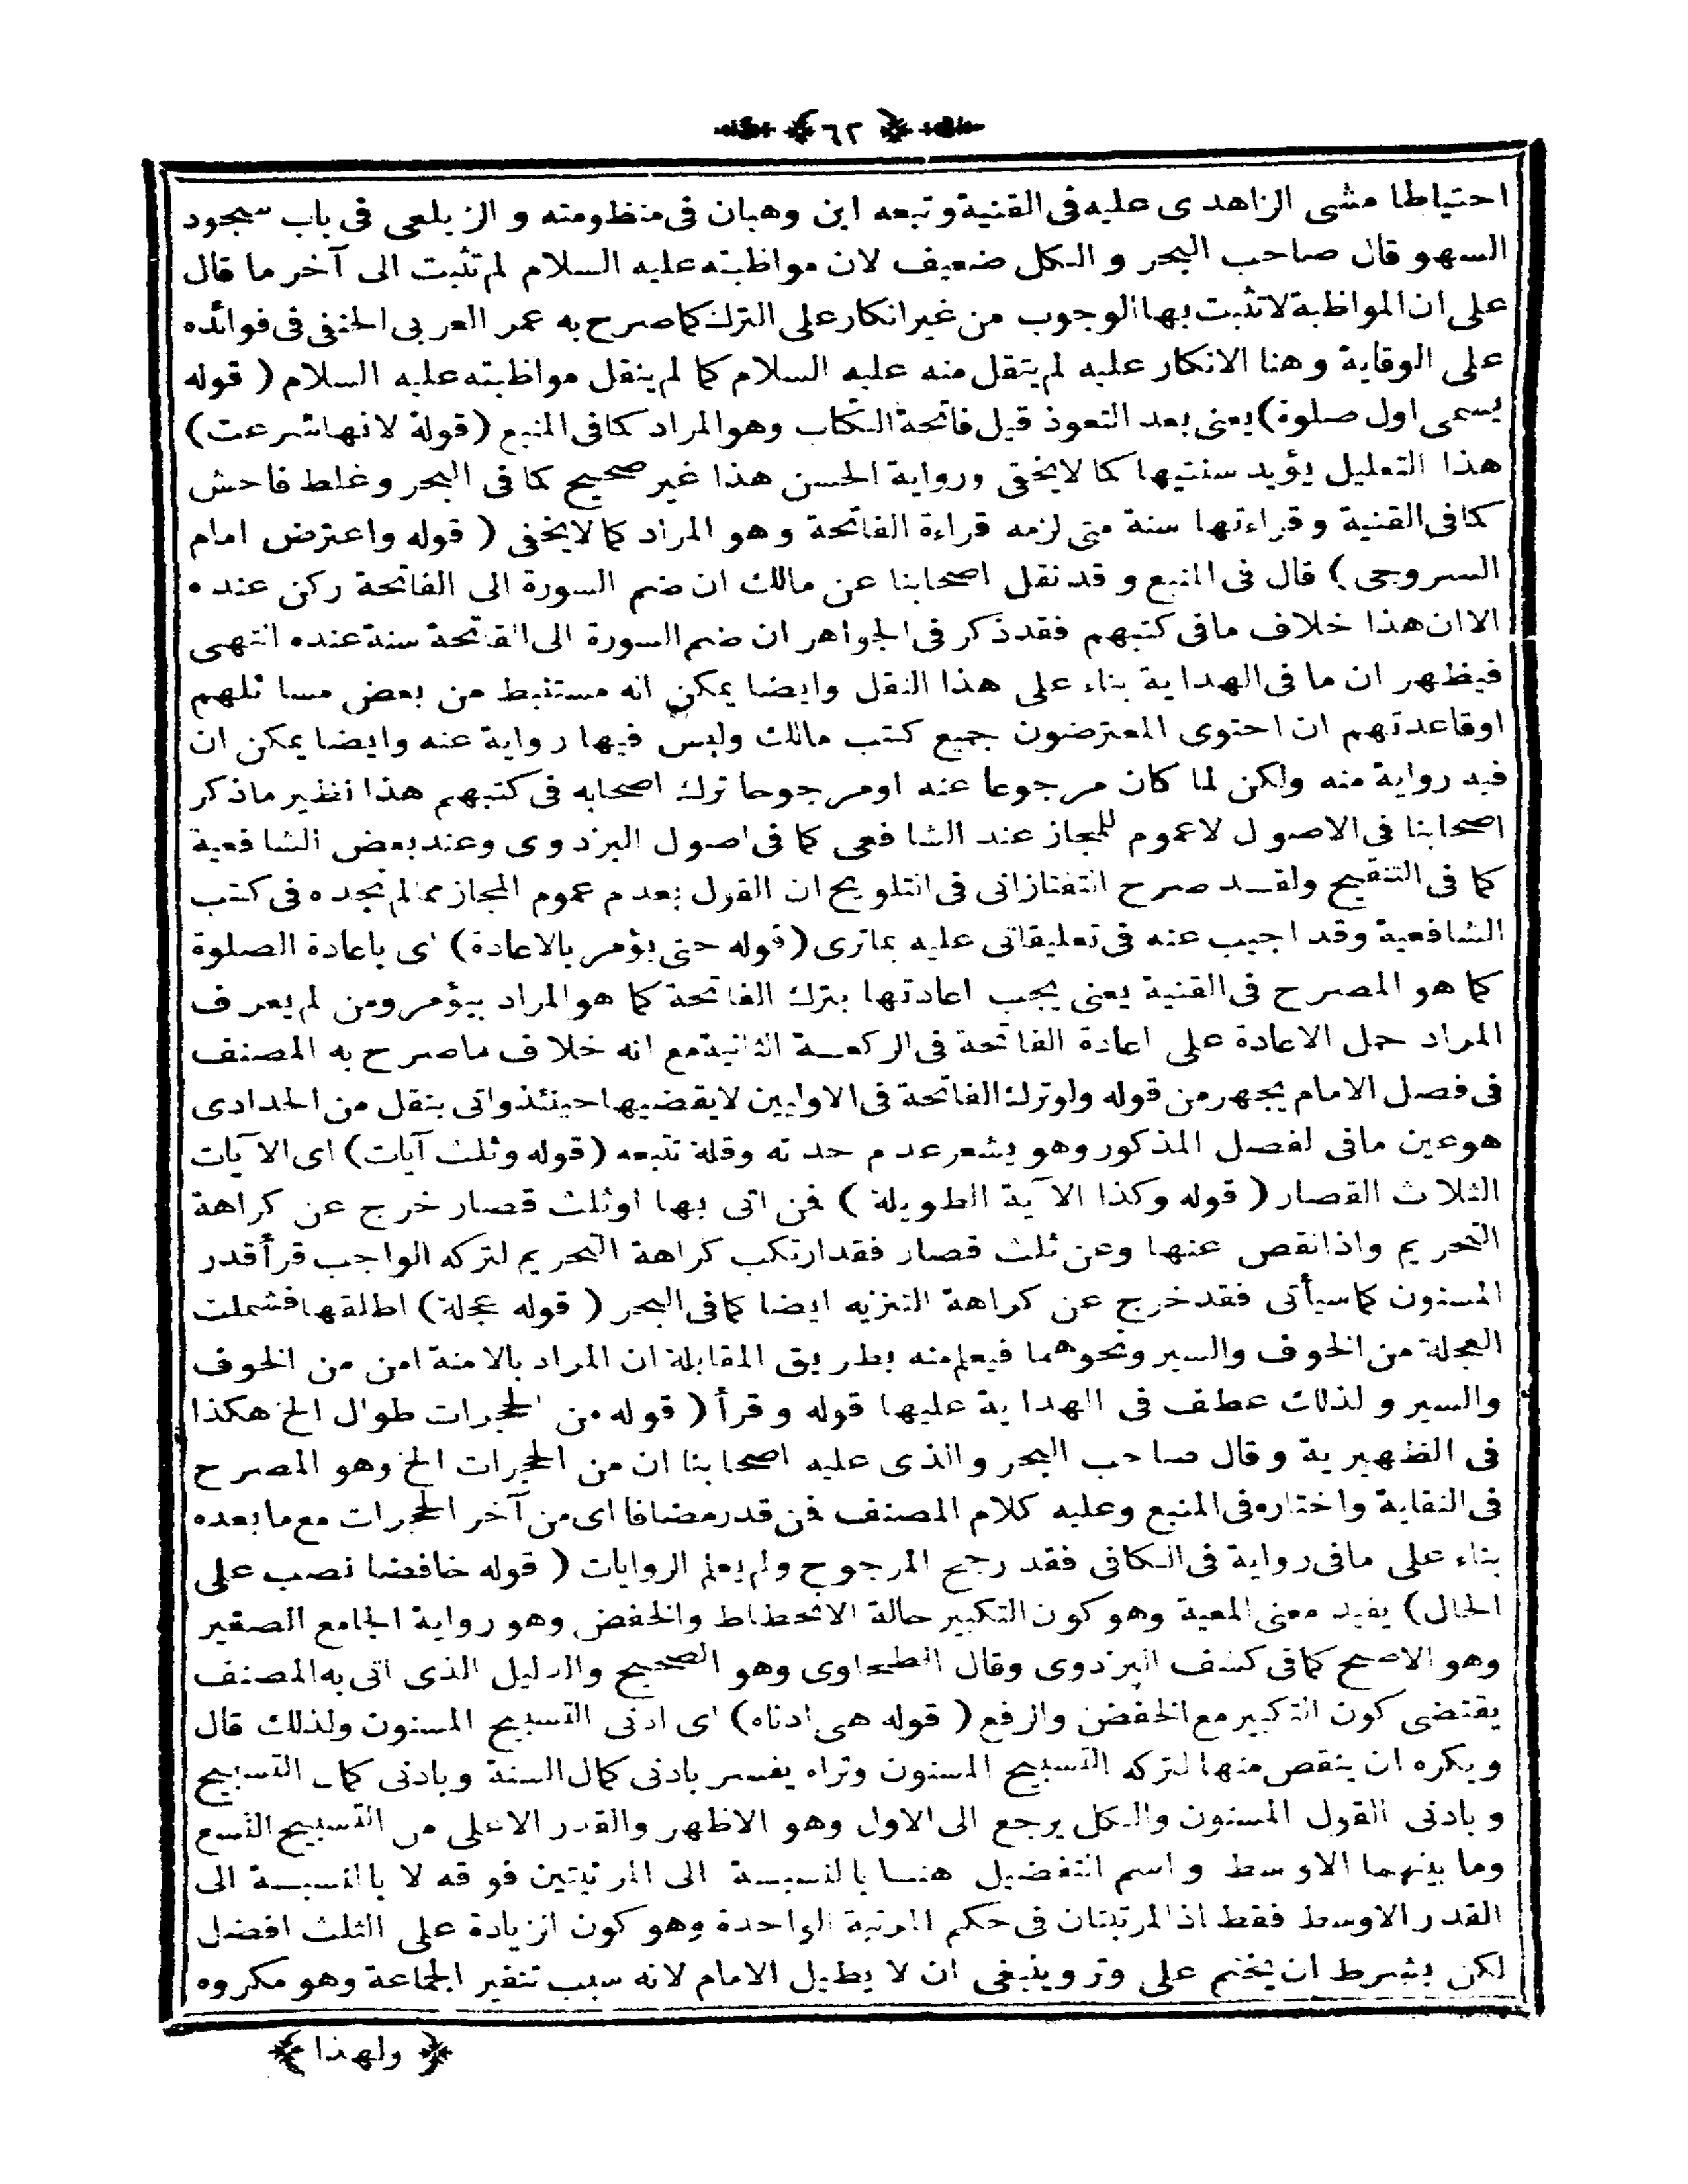 ﴿ ٦٢ ﴾
احتياطا مشى الزاهدى عليه فى القنية وتبعه ابن وهبان فى منظومته و الزيلعى فى باب سجود
السهو قال صاحب البحر و الكل ضعيف لان مواظبته عليه السلام لم تثبت الى آخر ما قال
على ان المواظبة لا تثبت بها الوجوب من غير انكار على الترك كما صرح به عمر العربى الحنفى فى فوائده
على الوقاية و هنا الانكار عليه لم ينقل منه عليه السلام كما لم ينقل مواظبته عليه السلام ( قوله
يسمى اول صلوة) يعنى بعد التعوذ قبل فاتحة الكتاب وهو المراد كما فى المنبع (قوله لانها شرعت)
هذا التعليل يؤيد سنتيها كما لا يخفى ورواية الحسن هذا غير صحيح كما فى البحر و غلط فاحش
كما فى القنية و قراءتها سنة متى لزمه قراءة الفاتحة و هو المراد كما لا يخفى ( قوله واعترض امام
السروجى ) قال فى المنبع و قد نقل اصحابنا عن مالك ان ضم السورة الى الفاتحة ركن عنده
الا ان هذا خلاف ما فى كتبهم فقد ذكر فى الجواهر ان ضم السورة الى الفاتحة سنة عنده انتهى
فيظهر ان ما فى الهداية بناء على هذا النقل وايضا يمكن انه مستنبط من بعض مسائلهم
اوقاعدتهم ان احتوى المعترضون جميع كتب مالك وليس فيها رواية عنه وايضا يمكن ان
فيه رواية منه ولكن لما كان مرجوعا عنه اومرجوحا ترك اصحابه فى كتبهم هذا نظير ماذكر
اصحابنا فى الاصول لا عموم للمجاز عند الشافعى كما فى اصول البزدوى وعند بعض الشافعية
كما فى التنقيح ولقد صرح التفتازانى فى التلويح ان القول بعدم عموم المجاز مما لم نجده فى كتب
الشافعية وقد اجيب عنه فى تعليقاتى عليه بماترى (قوله حتى يؤمر بالاعادة) اى باعادة الصلوة
كما هو المصرح فى القنية يعنى يجب اعادتها بترك الفاتحة كما هو المراد بيؤمر ومن لم يعرف
المراد حمل الاعادة على اعادة الفاتحة فى الركعة الثانية مع انه خلاف ماصرح به المصنف
فى فصل الامام يجهر من قوله ولو ترك الفاتحة فى الاوليين لا يقضيها حينئذ واتى بنقل من الحدادى
هو عين مافى لفصل المذكور وهو يشعر عدم حدته وقلة تتبعه (قوله وثلث آيات) اى الآيات
الثلاث القصار ( قوله وكذا الآية الطويلة ) فمن اتى بها اوثلث قصار خرج عن كراهة
التحريم واذا نقص عنها وعن ثلث قصار فقد ارتكب كراهة التحريم لتركه الواجب قرأ قدر
المسنون كما سيأتى فقد خرج عن كراهة التنزيه ايضا كما فى البحر ( قوله عجلة) اطلقها فشملت
العجلة من الخوف والسير ونحوهما فيعلم منه بطريق المقابلة ان المراد بالامنة امن من الخوف
والسير و لذلك عطف فى الهداية عليها قوله و قرأ ( قوله من الحجرات طوال الخ هكذا
فى الظهيرية وقال صاحب البحر والذى عليه اصحابنا ان من الحجرات الخ وهو المصرح
فى النقاية واختاره فى المنبع وعليه كلام المصنف فمن قدر مضافا اى من آخر الحجرات مع ما بعده
بناء على مافى رواية فى الكافى فقد رجح المرجوح ولم يعلم الروايات ( قوله خافضا نصب على
الحال) يفيد معنى المعية وهو كون التكبير حالة الانحطاط والخفض وهو رواية الجامع الصغير
وهو الاصح كما فى كشف البزدوى وقال الطحاوى وهو الصحيح والدليل الذى اتى به المصنف
يقتضى كون التكبير مع الخفض والرفع ( قوله هى ادناه) اى ادنى التسبيح المسنون ولذلك قال
ويكره ان ينقص منها لتركه التسبيح المسنون وتراه يفسر بادنى كمال السنة وبادنى كمال التسبيح
و بادنى القول المسنون والكل يرجع الى الاول وهو الاظهر والقدر الاعلى من التسبيح التسع
وما بينهما الاوسط و اسم التفضيل هنا بالنسبة الى المرتبتين فوقه لا بالنسبة الى
القدر الاوسط فقط اذ المرتبتان فى حكم المرتبة الواحدة وهو كون الزيادة على الثلث افضل
لكن بشرط ان يختم على وتر وينبغى ان لا يطيل الامام لانه سبب تنفير الجماعة وهو مكروه
﴿ ولهذا ﴾